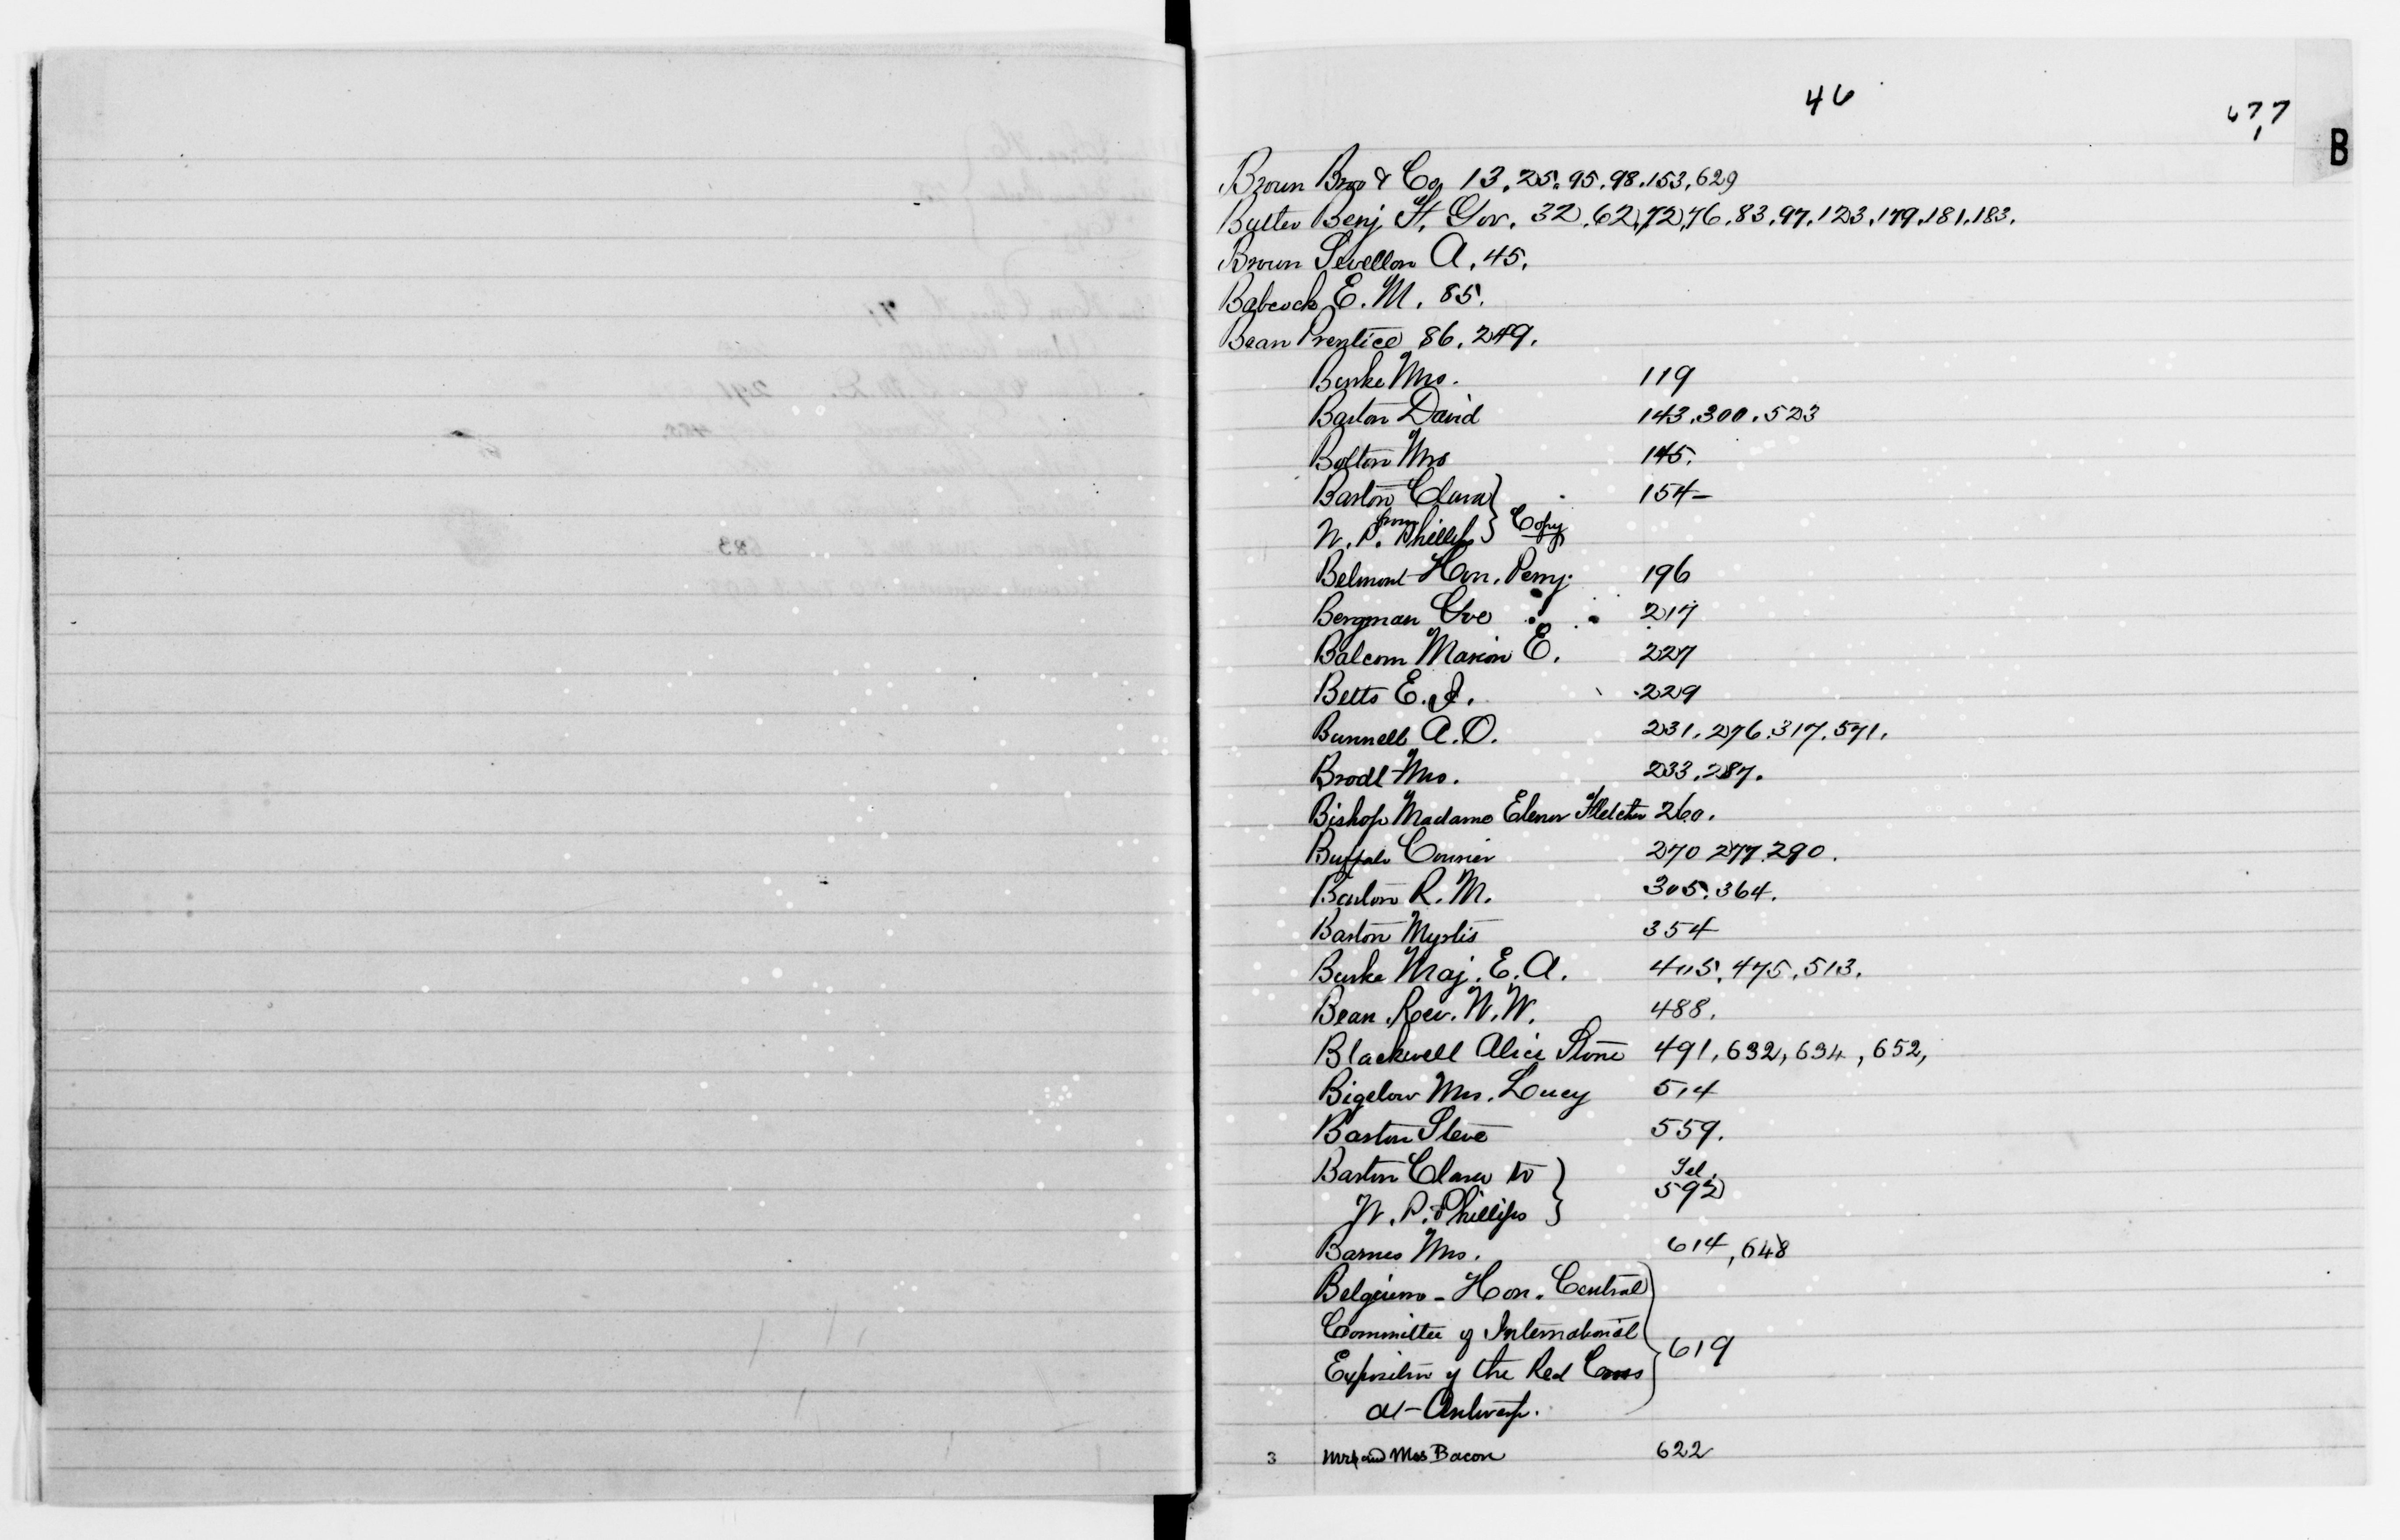 46
677
1
B
Brown Bros & Co, 13, 25, 95, 98, 153, 629
Butler Benj. F. Gov. 32, 62, 72, 76, 83, 97, 123, 179, 181, 183.
Brown Sevellon A. 45.
Babcock E. M. 85.
Bean Prentice 86, 249.
Burke Mrs. 119
Barton David 143, 300, 523
Bolton Mrs 145.
Barton Clara } 154
from
W. P. Phillips } Copy
Belmont Hon. Perry 196
Bergman Ove 217
Balcom Marion E. 227
Betts E. J. 229
Bunnell A. O. 231, 276, 317, 571.
Brodt Mrs. 233, 287.
Bishop Madame Elenor Fletcher 260.
Buffalo Courier 270 277 290.
Barton R. M. 305, 364.
Barton Myrtis 354
Burke Maj. E. A. 405, 475, 513.
Bean Rev. W. W. 488.
Blackwell Alice Stone 491, 632, 634, 652,
Bigelow Mrs. Lucy 514
Barton Steve 559.
Barton Clara to } Tel.
W. P. Phillips } 592
Barnes Mrs. 614, 648
Belgium - Hon. Central
Committee of International
Exposition of the Red Cross } 619
at Antwerp.
3 Mr and Mrs Bacon 622